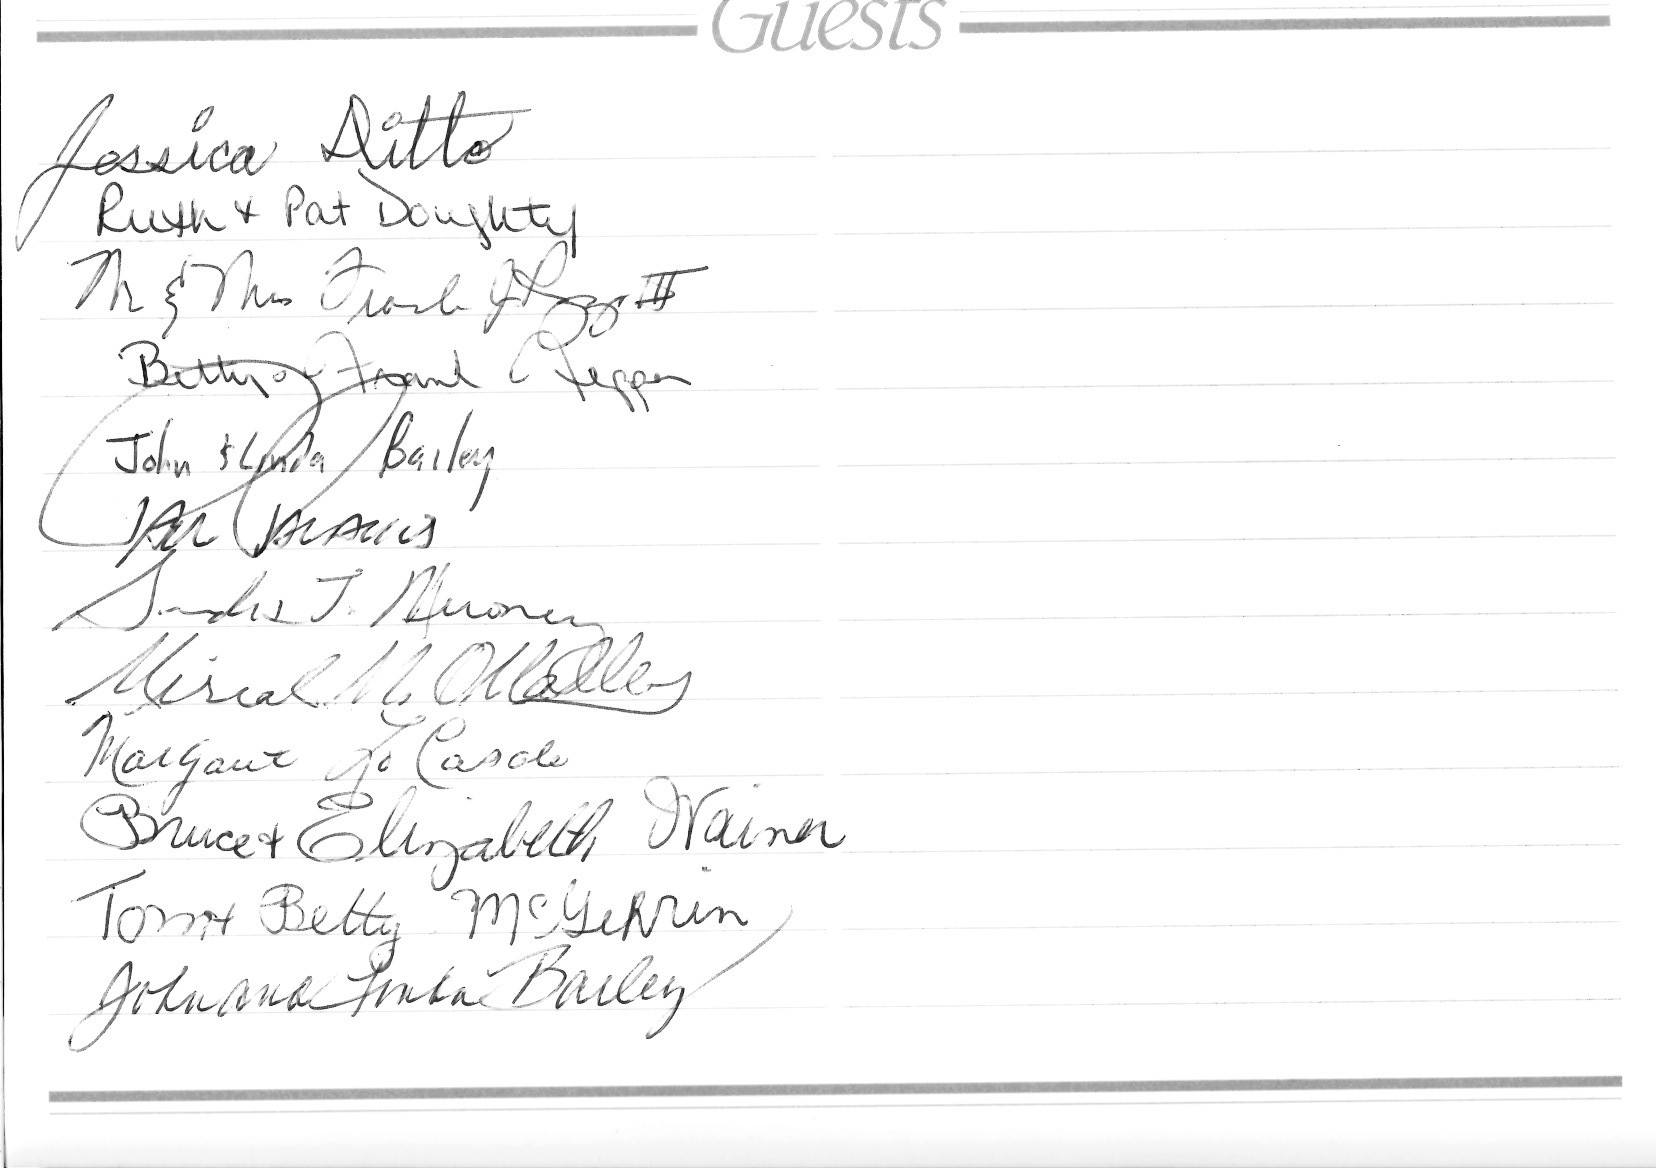 Guests
Jessica Ditto
Ruth & Pat Doughty
Mr & Mrs Frank J III
Betty & Frank Pepper
John & Linda Bailey
Sandra J. Meroney
M. O'Malley
Margaret Lo Casale
Bruce & Elizabeth Wainer
Tom & Betty McGerrin
John and Linda Bailey